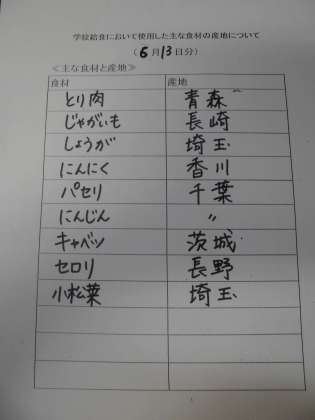 学校給食において使用した主な食材の産地について
(6月13日分)
≪主な食材と産地≫
食材 産地
とり肉 青森
じゃがいも 長崎
しょうが 埼玉
にんにく 香川
パセリ 千葉
にんじん 〃
キャベツ 茨城
セロリ 長野
小松葉 埼玉